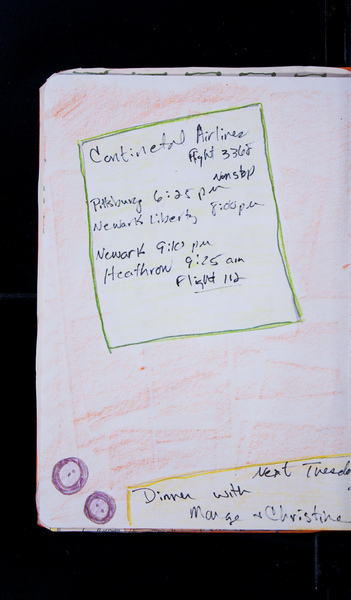 Continetal Airlines
flight 3368
nonstop
Pittsburg 6:25 pm
Newark Liberty 8:00 pm
Newark 9:10 pm
Heathrow 9:25 am
Flight 112
Next Tuesda
Dinner with
Marge + Christine